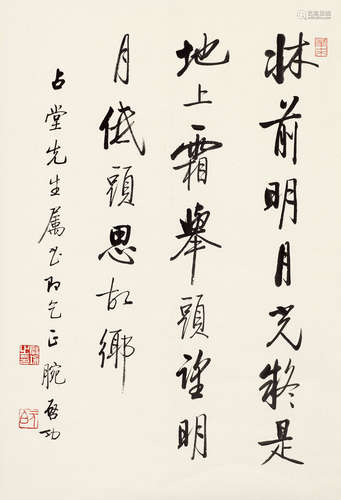 牀前明月光疑是
地上霜舉頭望明
月低頭思故鄉
占堂先生屬書即乞正腕 啓功